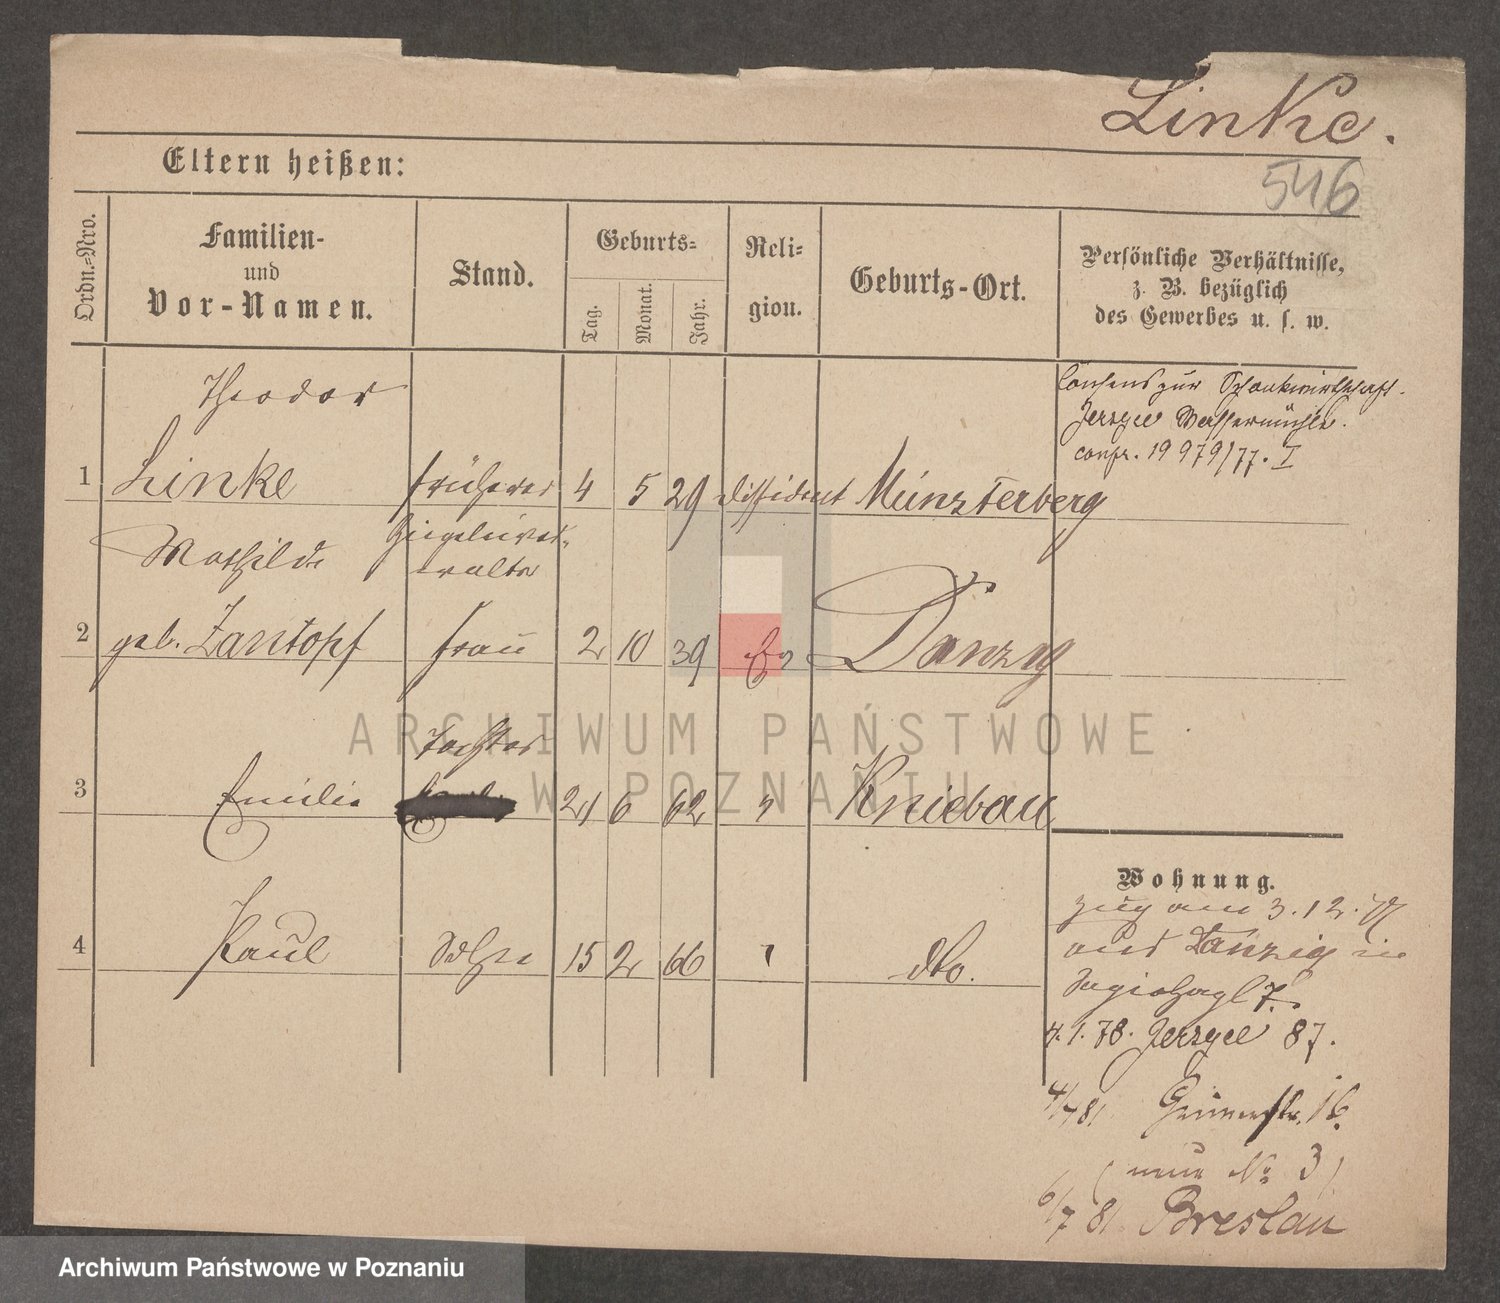 Linke.
546
Eltern heißen:
Ordn.=Nro.
Familien-
und
Vor-Namen.
Stand.
Geburts=
Tag.
Monat.
Jahr.
Reli=
gion.
Geburts-Ort.
Persönliche Verhältnisse,
z. B. bezüglich
des Gewerbes u. s. w.
Theodor
1 Linke früherer 4 5 29 Dissident Münsterberg
Ziegeleiver-
walter
Consens zur Schankwirthschaft.
Jerzyce Wassermühle.
confr. 19 979/77. I
Mathilde
2 geb. Zantopf Frau 2 10 39 Ev Danzig
Tochter
3 Emilie 21 6 62 " Kniebau
4 Paul Sohn 15 2 66 " dto.
Wohnung.
zug am 3.12.77
aus Danzig in
7.
4.1.78. Jerzyce 87.
4/7 81 Grünestr. 16.
(neue No 3)
6/7 81 Breslau
ARCHIWUM PAŃSTWOWE
W POZNANIU
Archiwum Państwowe w Poznaniu